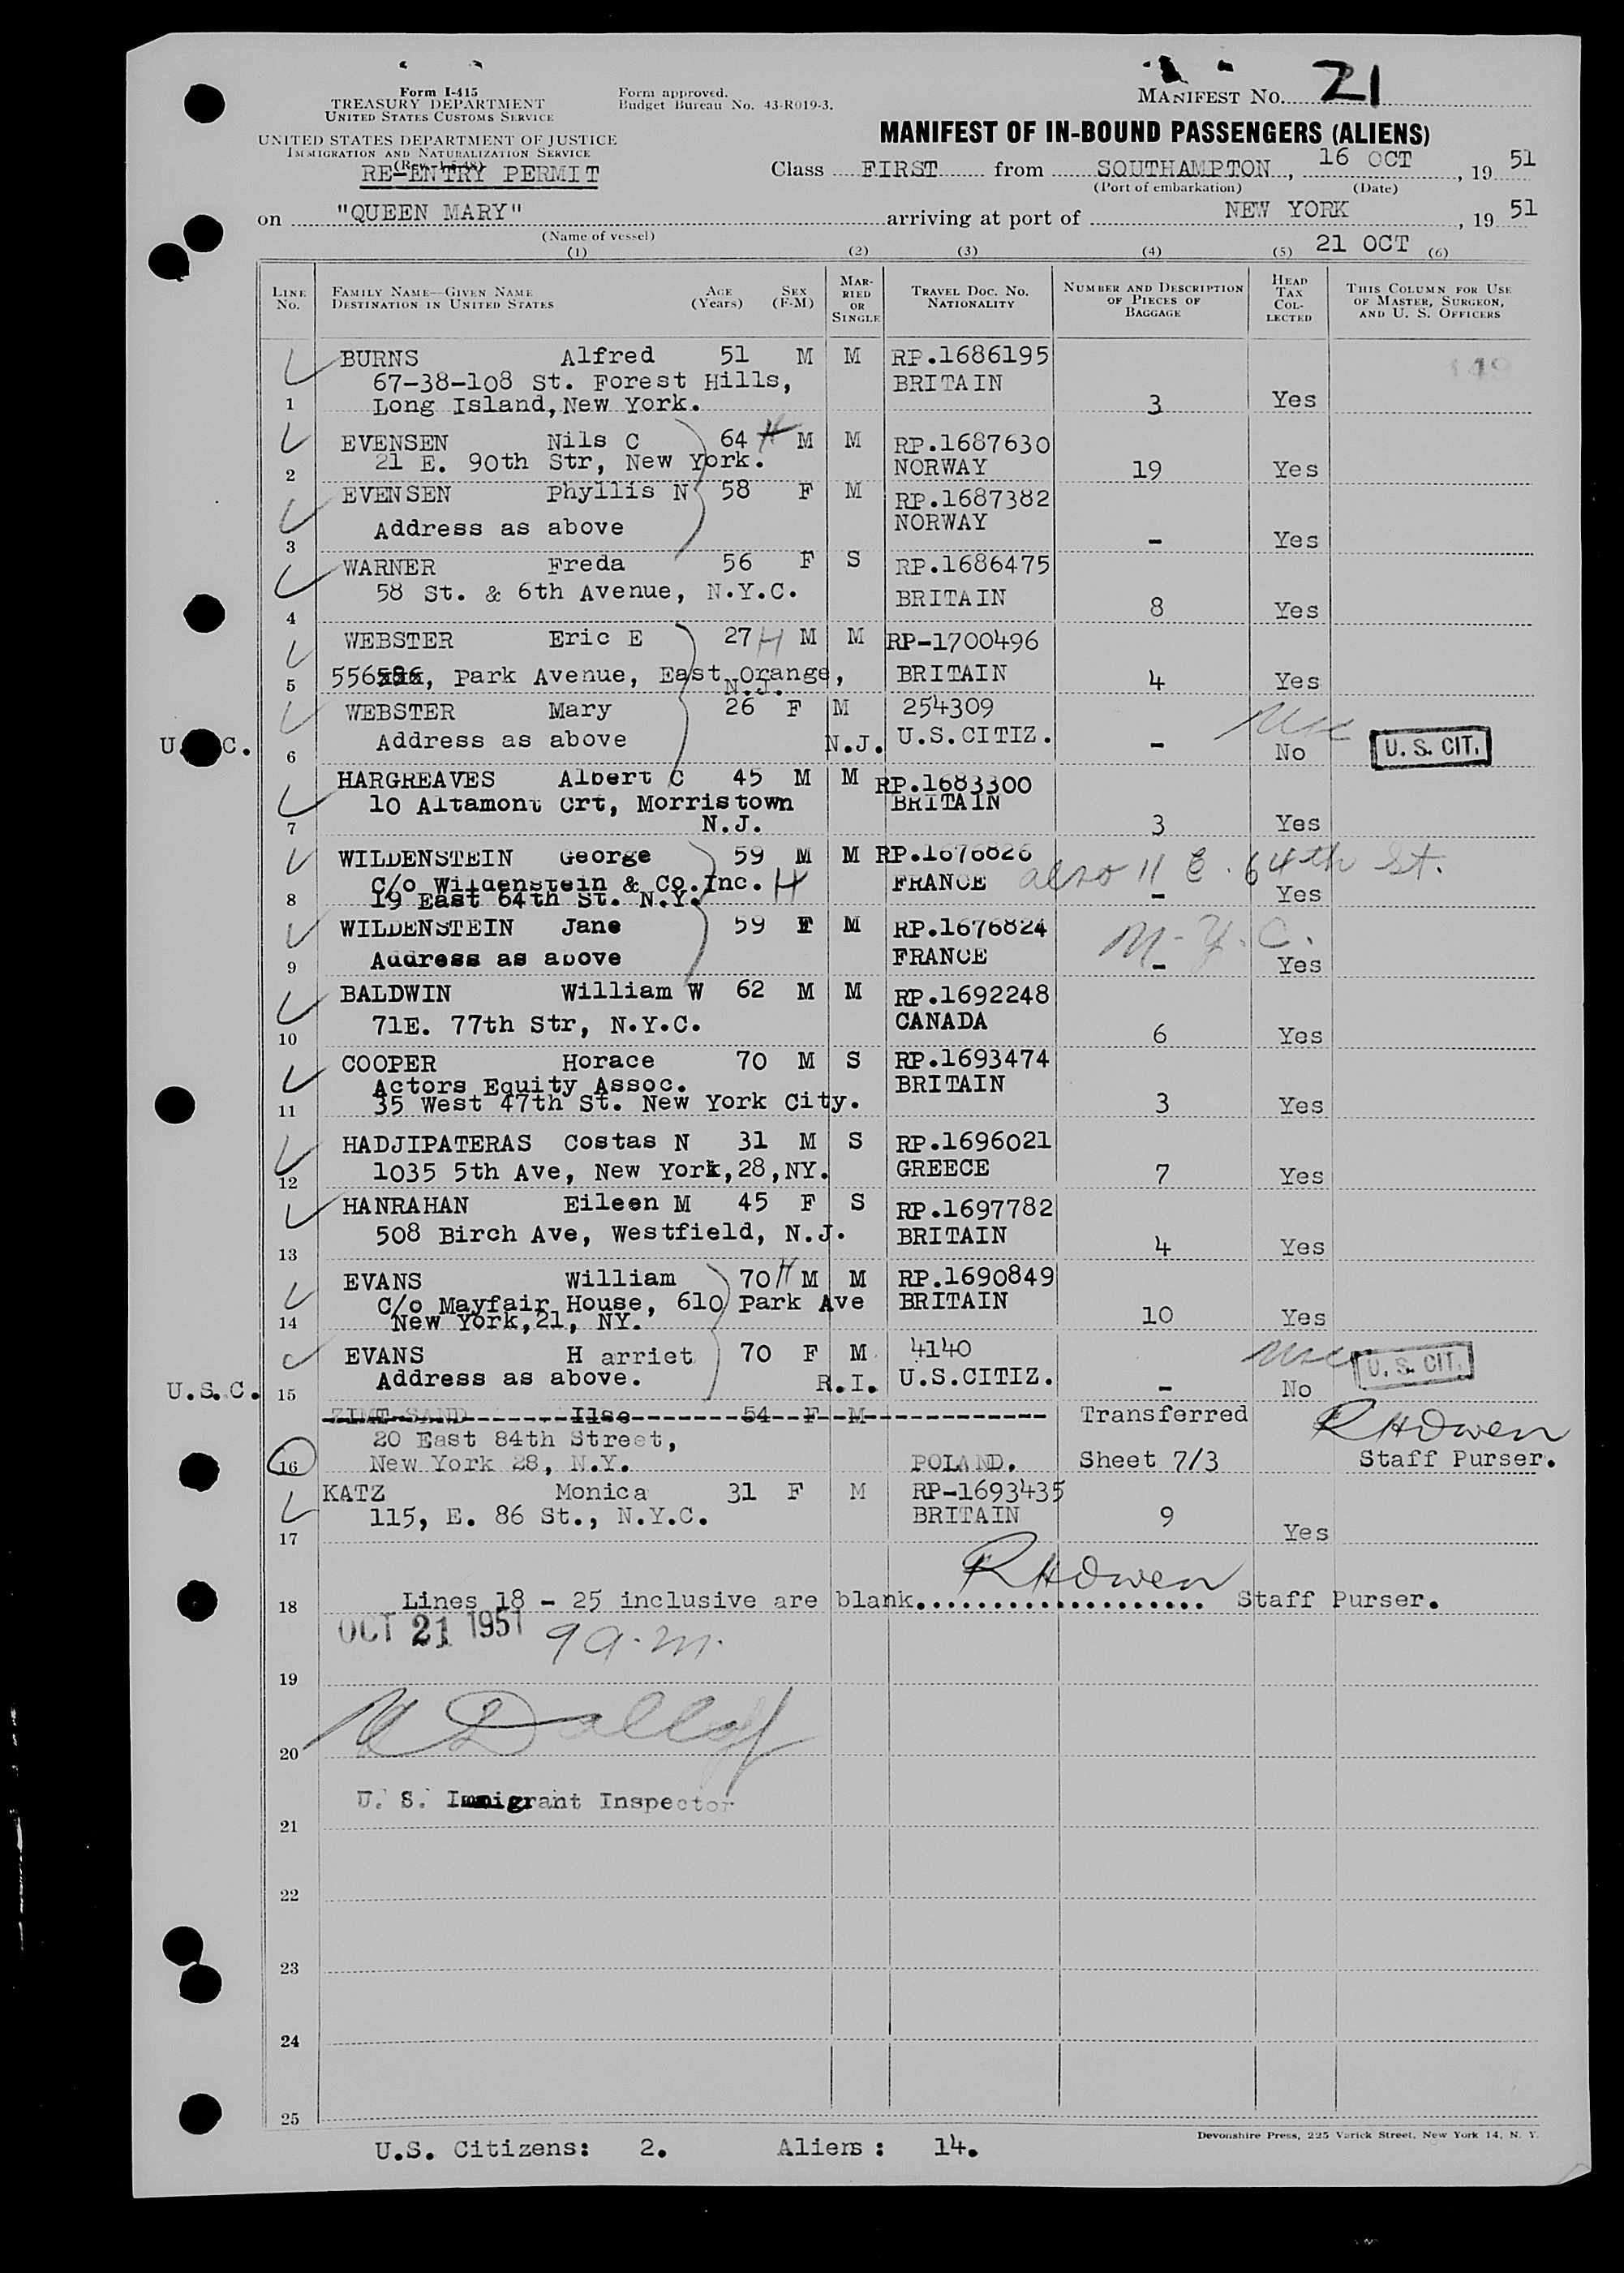 Form I-415
TREASURY DEPARTMENT
UNITED STATES CUSTOMS SERVICE
UNITED STATES DEPARTMENT OF JUSTICE
IMMIGRATION AND NATURALIZATION SERVICE
RE-ENTRY PERMIT
Form approved.
Budget Bureau No. 43-R019-3.
MANIFEST NO. 21
MANIFEST OF IN-BOUND PASSENGERS (ALIENS)
Class FIRST from SOUTHAMPTON, 16 OCT, 19 51
(Port of embarkation) (Date)
on "QUEEN MARY" arriving at port of NEW YORK, 19 51
(Name of vessel) 21 OCT
(1) (2) (3) (4) (5) (6)
LINE NO. FAMILY NAME—GIVEN NAME DESTINATION IN UNITED STATES AGE (Years) SEX (F-M) MARRIED OR SINGLE TRAVEL DOC. NO. NATIONALITY NUMBER AND DESCRIPTION OF PIECES OF BAGGAGE HEAD TAX COLLECTED THIS COLUMN FOR USE OF MASTER, SURGEON, AND U. S. OFFICERS
BURNS Alfred 51 M M RP.1686195 149
67-38-108 St. Forest Hills, BRITAIN
1 Long Island, New York. 3 Yes
EVENSEN Nils C 64 H M M RP.1687630
21 E. 90th Str, New York. NORWAY
2 19 Yes
EVENSEN Phyllis N 58 F M RP.1687382
Address as above NORWAY
3 - Yes
WARNER Freda 56 F S RP.1686475
58 St. & 6th Avenue, N.Y.C. BRITAIN
4 8 Yes
WEBSTER Eric E 27 H M M RP-1700496
5 556, Park Avenue, East Orange, BRITAIN 4 Yes
N.J.
WEBSTER Mary 26 F M 254309
U.S.C. Address as above N.J. U.S.CITIZ. U. S. CIT.
6 - No
HARGREAVES Albert C 45 M M RP.1683300
10 Altamont Crt, Morristown BRITAIN
7 N.J. 3 Yes
WILDENSTEIN George 59 M M RP.1676826
C/o Wildenstein & Co.Inc. H FRANCE also 11 E. 64th St.
8 19 East 64th St. N.Y. - Yes
WILDENSTEIN Jane 59 F M RP.1676824
Address as above FRANCE N.Y.C.
9 - Yes
BALDWIN William W 62 M M RP.1692248
71E. 77th Str, N.Y.C. CANADA
10 6 Yes
COOPER Horace 70 M S RP.1693474
Actors Equity Assoc. BRITAIN
11 35 West 47th St. New York City. 3 Yes
HADJIPATERAS Costas N 31 M S RP.1696021
12 1035 5th Ave, New York,28,NY. GREECE 7 Yes
HANRAHAN Eileen M 45 F S RP.1697782
508 Birch Ave, Westfield, N.J. BRITAIN
13 4 Yes
EVANS William 70 H M M RP.1690849
C/o Mayfair House, 610 Park Ave BRITAIN
14 New York,21, NY. 10 Yes
EVANS H arriet 70 F M 4140 U. S. CIT.
Address as above. R.I. U.S.CITIZ.
U.S.C. 15 - No
ZIMT SAND Ilse 54 F M Transferred RHOwen
20 East 84th Street,
16 New York 28, N.Y. POLAND. Sheet 7/3 Staff Purser.
KATZ Monica 31 F M RP-1693435
115, E. 86 St., N.Y.C. BRITAIN 9
17 Yes
RHOwen
18 Lines 18 - 25 inclusive are blank.................... Staff Purser.
OCT 21 1951 9 a.m.
19
20
U. S. Immigrant Inspector
21
22
23
24
25
U.S. Citizens: 2. Aliens: 14.
Devonshire Press, 225 Varick Street, New York 14, N. Y.